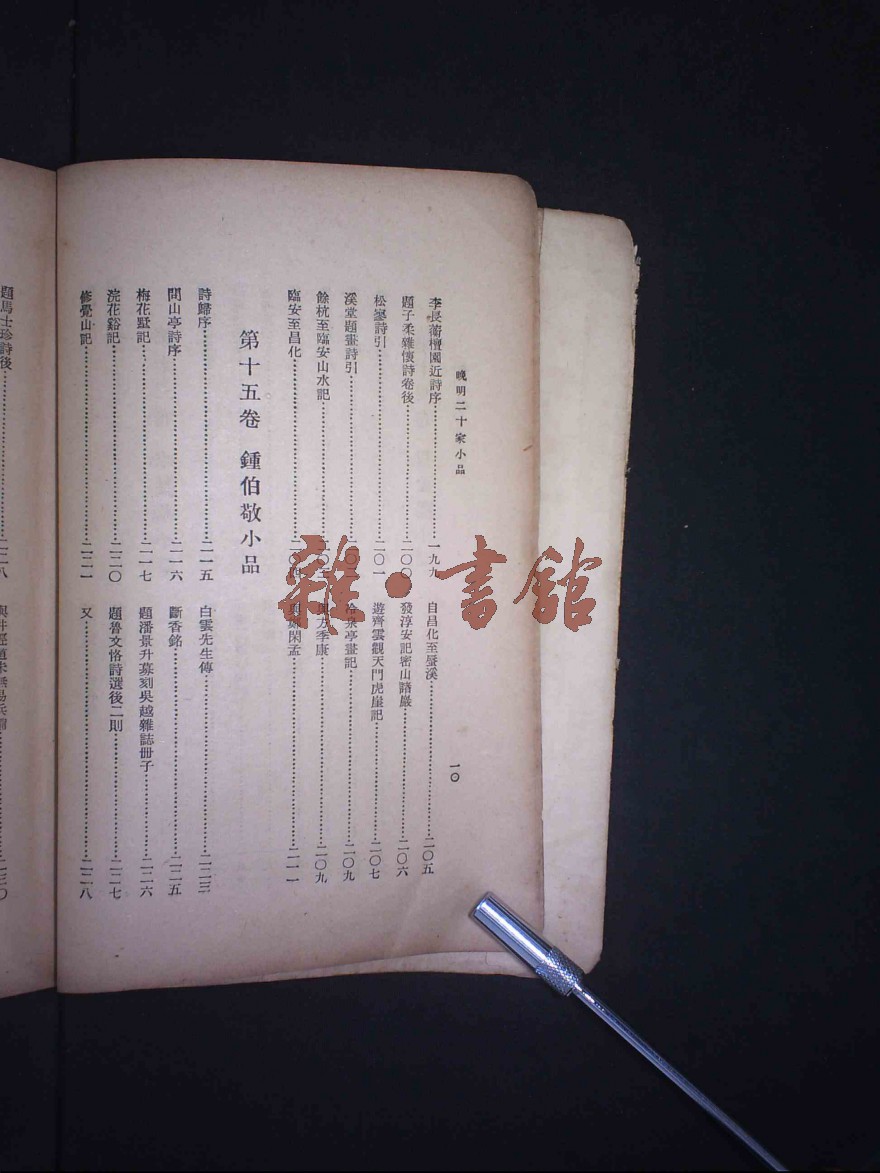 晚明二十家小品
一〇
李長蘅檀園近詩序一九九
題子柔雜懷詩卷後二〇〇
松寥詩引二〇一
溪堂題畫詩引二〇
餘杭至臨安山水記
臨安至昌化
自昌化至蜃溪二〇五
發淳安記密山諸巖二〇六
遊齊雲觀天門虎崖記二〇七
冷泉亭畫記二〇九
方季康二〇九
閑孟二一一
第十五卷 鍾伯敬小品
詩歸序二一五
問山亭詩序二一六
梅花墅記二一七
浣花谿記二二〇
修覺山記二二一
白雲先生傳二二三
斷香銘二二五
題潘景升募刻吳越雜誌冊子二二六
題魯文恪詩選後二則二二七
又二二八
題馬士珍詩後二二八
二三〇
雜·書館